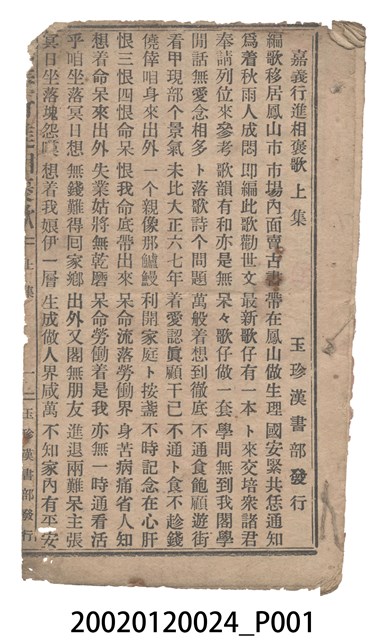 嘉義行進相褒歌 上集
玉珍漢書部發行
編歌移居鳳山市 市場內面賣古書 帶在鳳山做生理 國安緊共恁通知
為着秋雨人成悶 即編此歌勸世文 最新歌仔有一本 卜來交培衆諸君
奉請列位來參考 歌韻有和亦是無 呆々歌仔做一套 學問無到我閣學
閒話無愛念相多 卜落歌詩个問題 萬般着想到徹底 不通食飽顧遊街
看甲現部个景氣 未比大正六七年 着愛認眞顧干已 不通卜食不趁錢
僥倖咱身來出外 一个親像那鱸鰻 利開家庭卜按盞 不時記念在心肝
恨三恨四恨命呆 恨我命底帶出來 呆命流落勞働界 身苦病痛省人知
想着命呆來出外 失業姑將無乾磨 呆命勞働着是我 亦無一時通看活
乎咱坐落冥日想 無錢難得囘家鄉 出外又閣無朋友 進退兩難呆主張
冥日坐落塊怨嘆 想着我娘伊一層 生成做人界咸萬 不知家內有平安
上集
一
玉珍漢書部發行
20020120024_P001